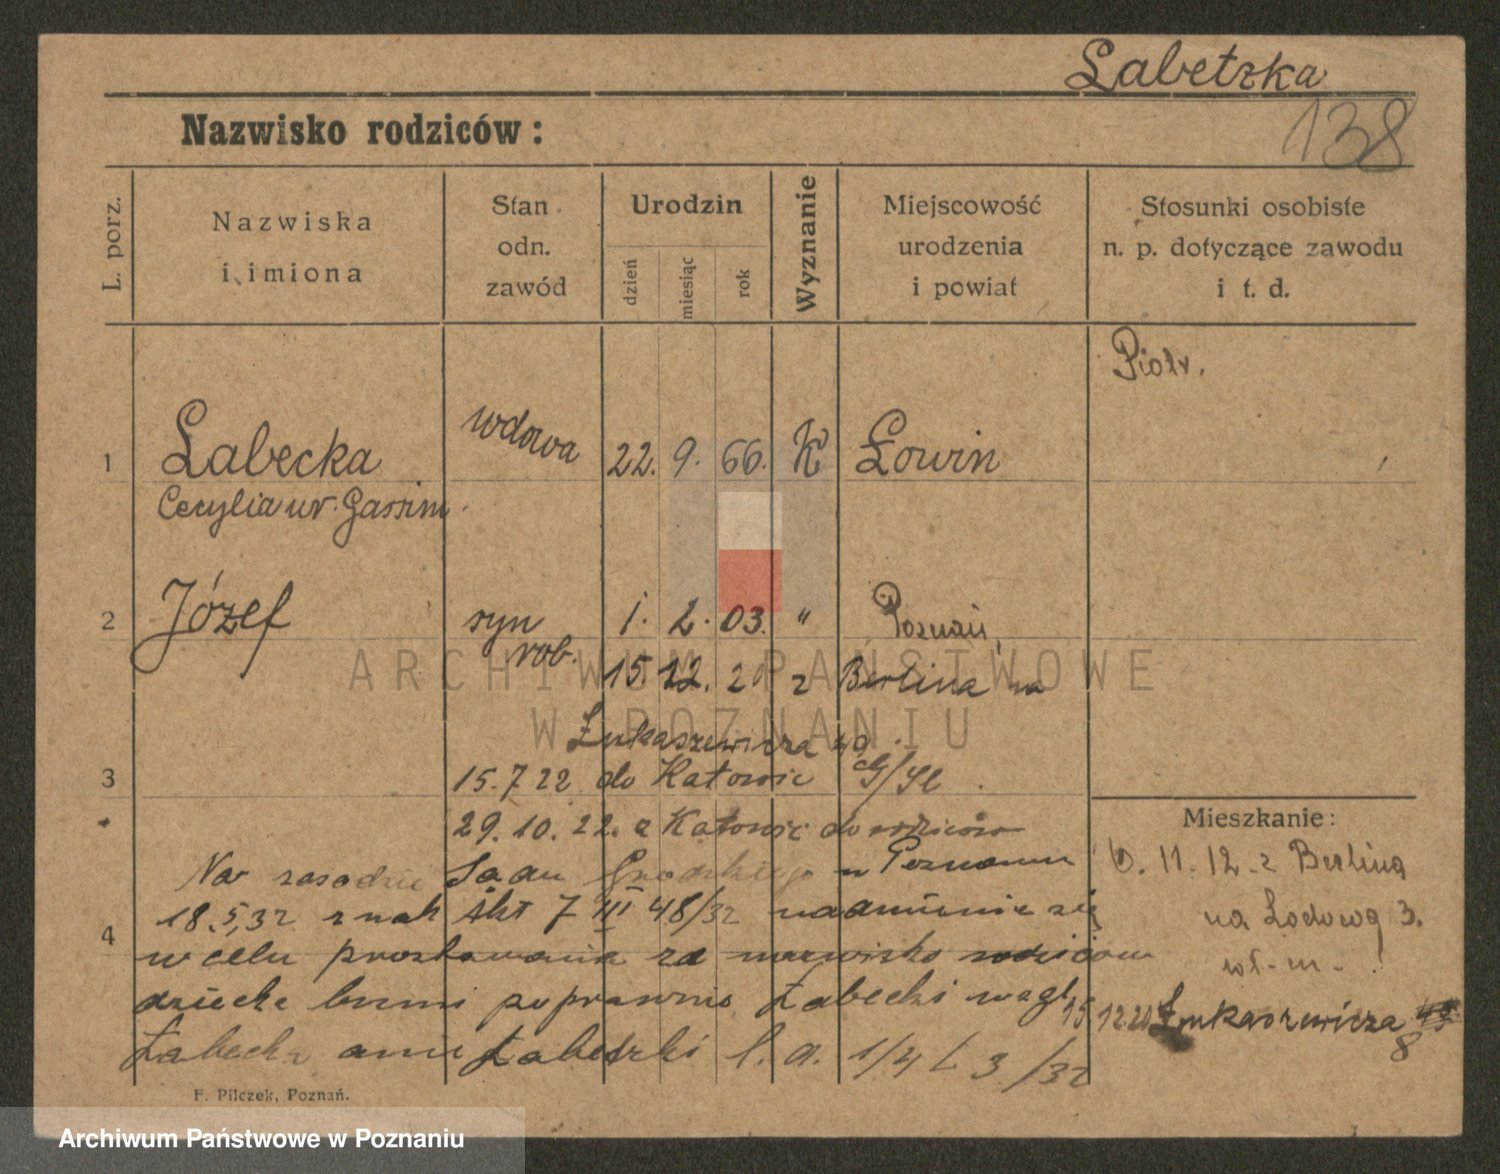 Łabetzka
138
Nazwisko rodziców:
L. porz.
Nazwiska
i imiona
Stan
odn.
zawód
Urodzin
dzień
miesiąc
rok
Wyznanie
Miejscowość
urodzenia
i powiat
Stosunki osobiste
n. p. dotyczące zawodu
i t. d.
Piotr.
1 Łabecka wdowa 22. 9. 66. K Łowin
Cecylia ur.
2 Józef syn 1. 2. 03. " Poznań,
rob.
15. 12. 20 z Berlina na
Łukaszewicza
3 15.7 22 do Katowic G/Sl.
29. 10. 22. z Katowic do rodziców
Na zasadzie Sądu Grodzkiego w Poznaniu
18.5.32 znak 7 III 48/32 się
4 w celu prostowania nazwisko rodziców
dziecka brzmi poprawnie Łabecki wzgl.
Łabecka a nie Łabetzki l. a. 1/4 L 3 /32
Mieszkanie:
11. 12. z Berlina
na Lodową 3.
15 12.20 Łukaszewicza
8
F. Pilczek, Poznań.
ARCHIWUM PAŃSTWOWE
W POZNANIU
Archiwum Państwowe w Poznaniu